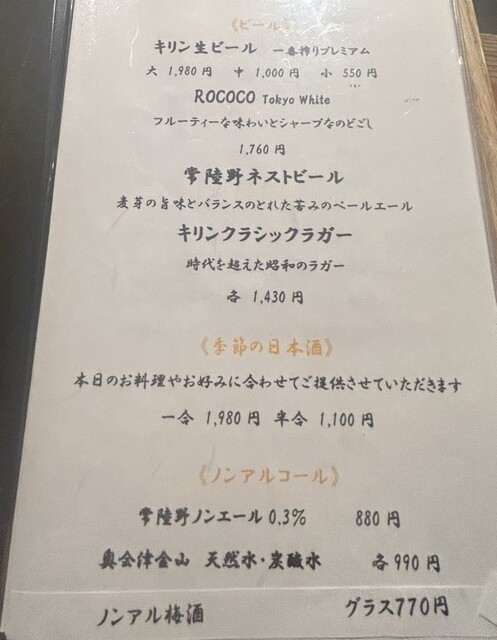 《ビール》
キリン生ビール 一番搾りプレミアム
大 1,980円 中 1,000円 小 550円
ROCOCO Tokyo White
フルーティーな味わいとシャープなのどごし
1,760円
常陸野ネストビール
麦芽の旨味とバランスのとれた苦みのペールエール
キリンクラシックラガー
時代を超えた昭和のラガー
各 1,430円
《季節の日本酒》
本日のお料理やお好みに合わせてご提供させていただきます
一合 1,980円 半合 1,100円
《ノンアルコール》
常陸野ノンエール0.3% 880円
奥会津金山 天然水・炭酸水 各990円
ノンアル梅酒 グラス770円